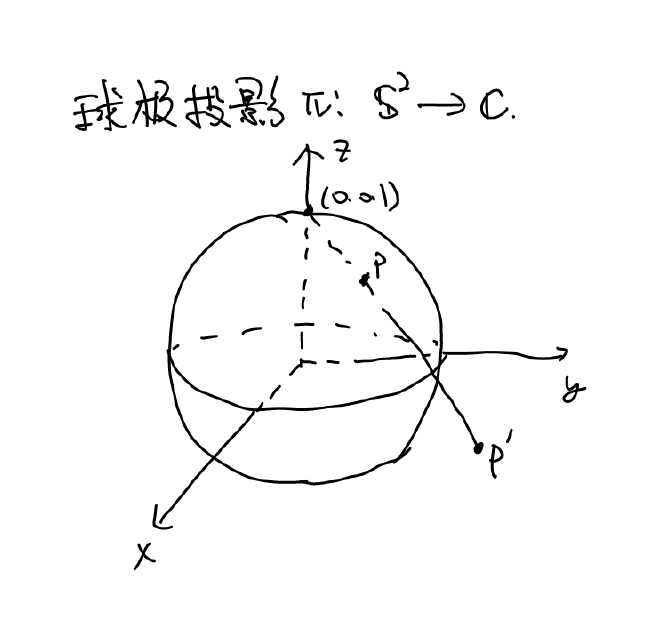 球极投影 π: S² → C.
z
(0.0.1)
P
y
P'
x